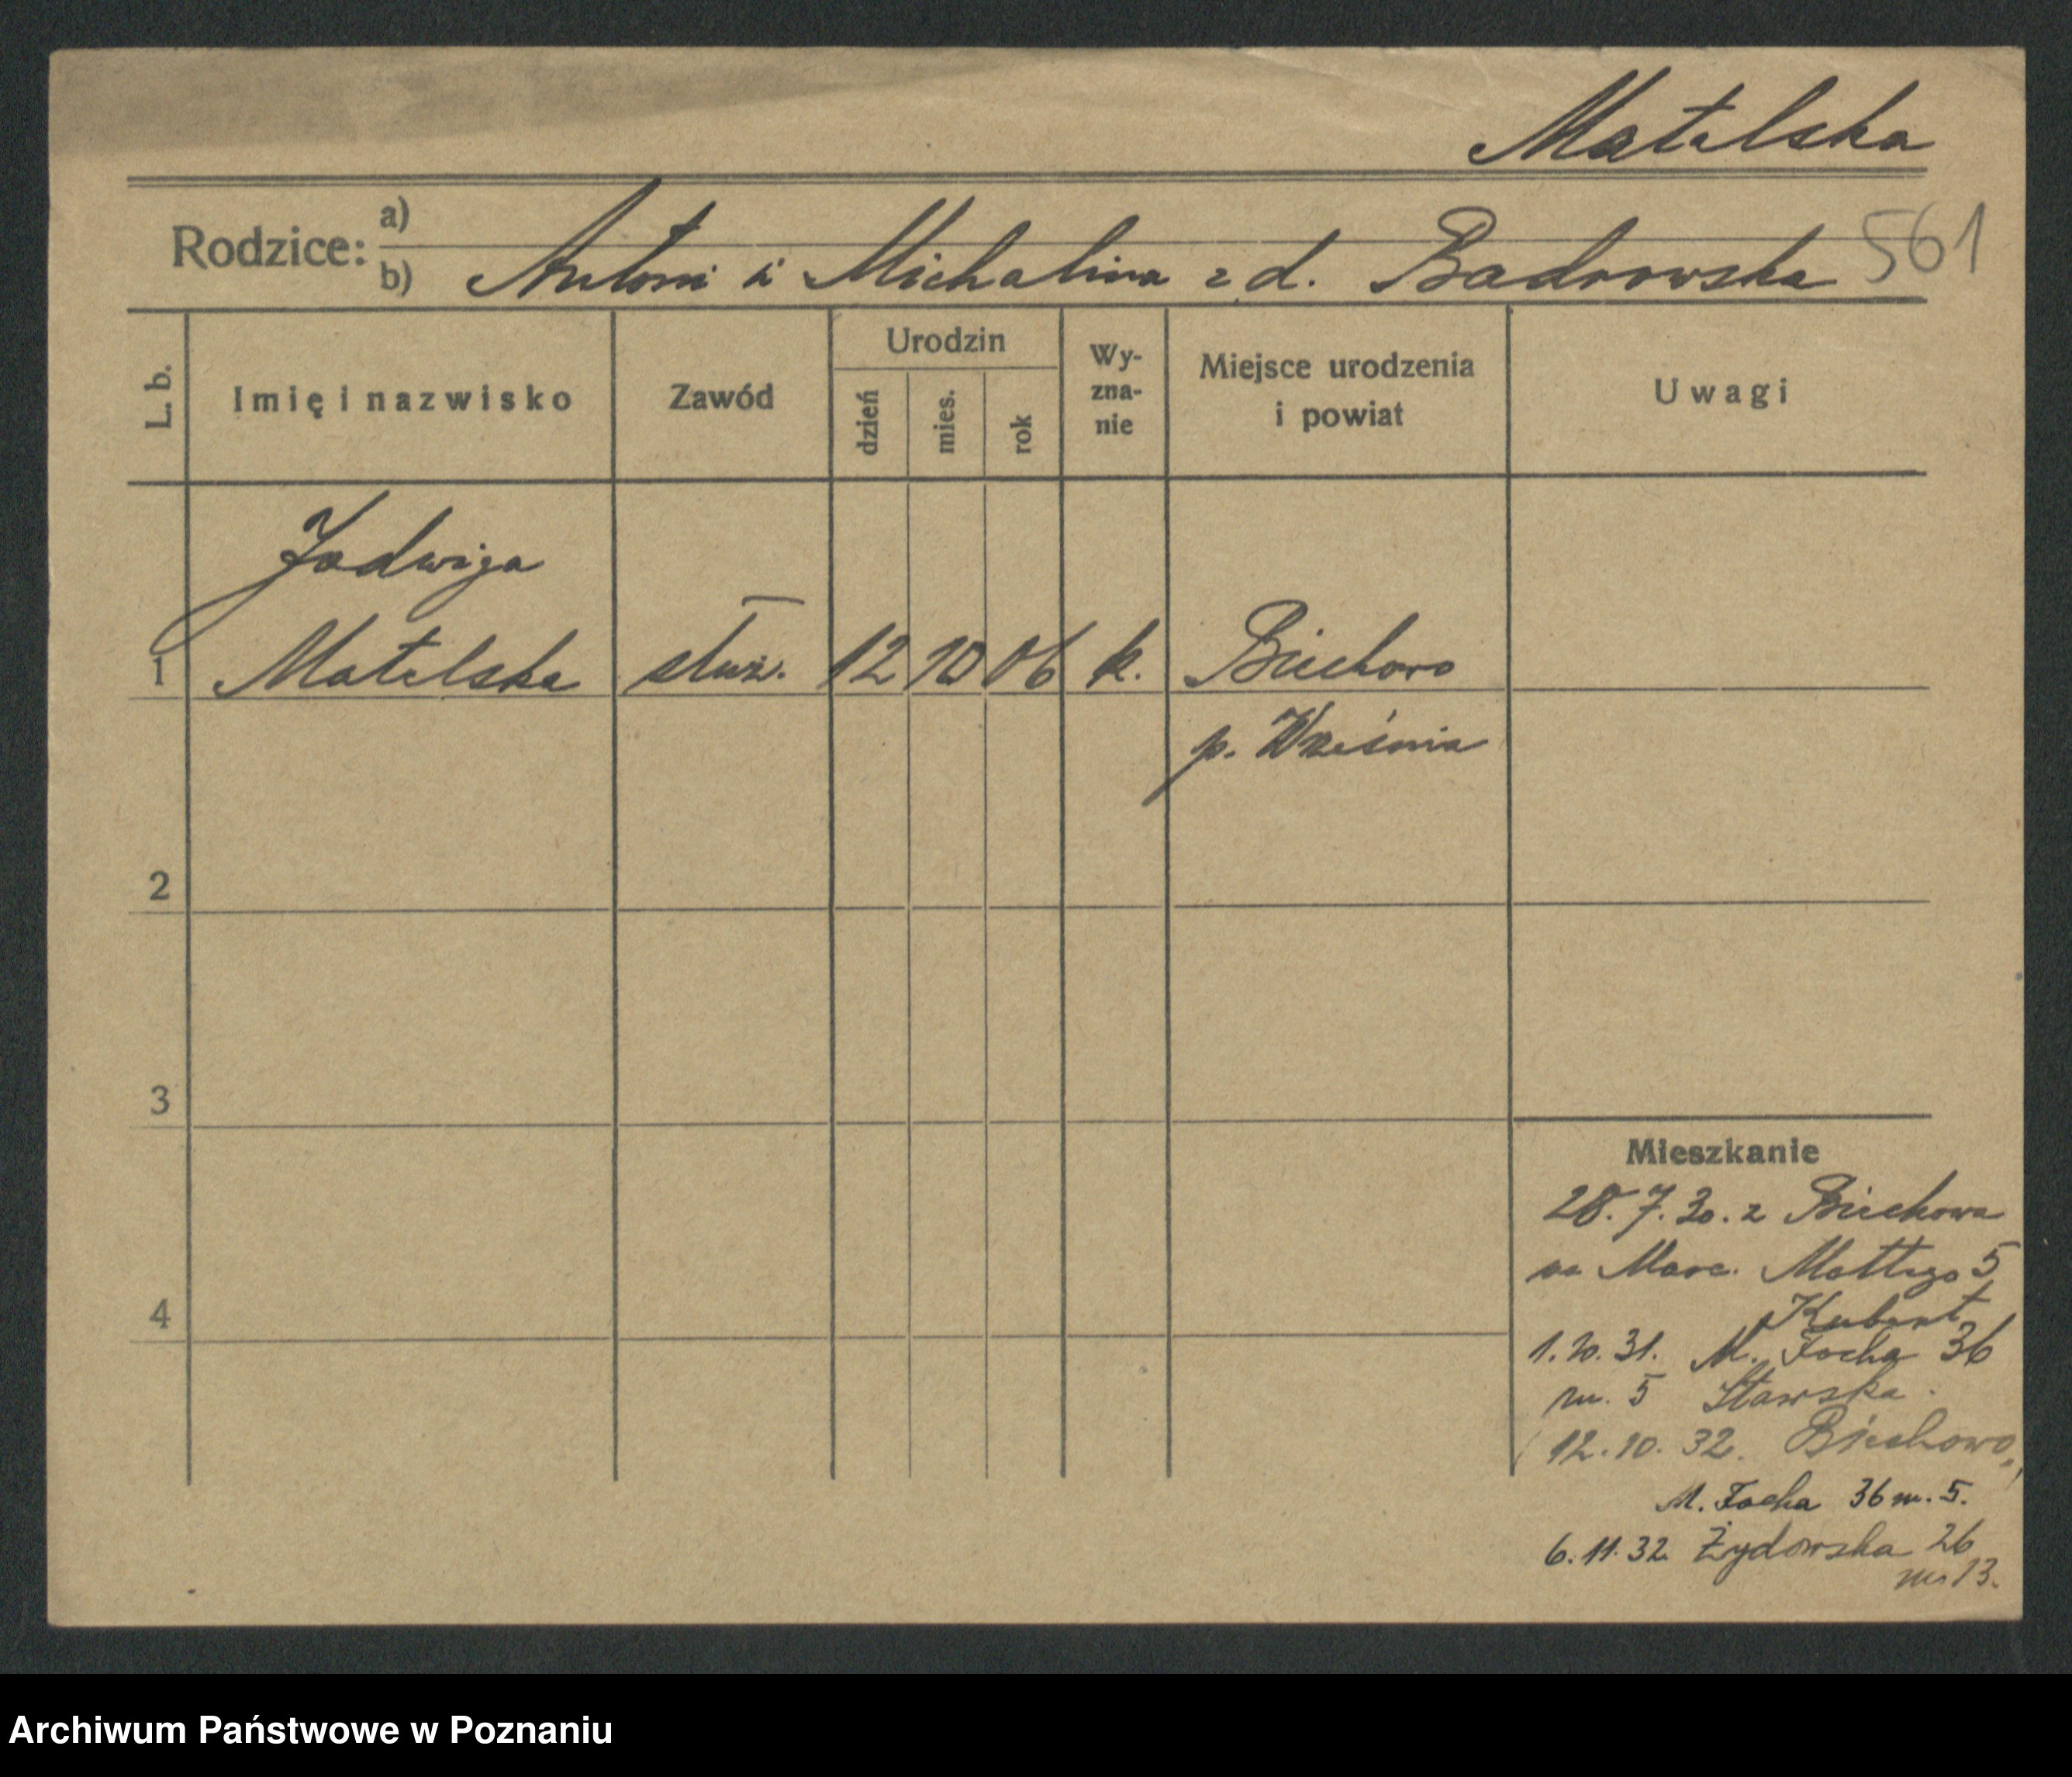 Matelska
Rodzice: a)
b) Antoni i Michalina z d. Badrowska
561
L. b.
Imię i nazwisko
Zawód
Urodzin
dzień
mies.
rok
Wy-
zna-
nie
Miejsce urodzenia
i powiat
Uwagi
Jadwiga
1 Matelska służ. 12 10 06 k. Biechowo
p. Września
2
3
4
Mieszkanie
28. 7. 30. z Biechowa
na Marc. Mottego 5
Kubert
1. 10. 31. M. Focha 36
m. 5 Stawska.
12. 10. 32. Biechowo,
M. Focha 36 m. 5.
6. 11. 32. Żydowska 26
m. 13.
Archiwum Państwowe w Poznaniu